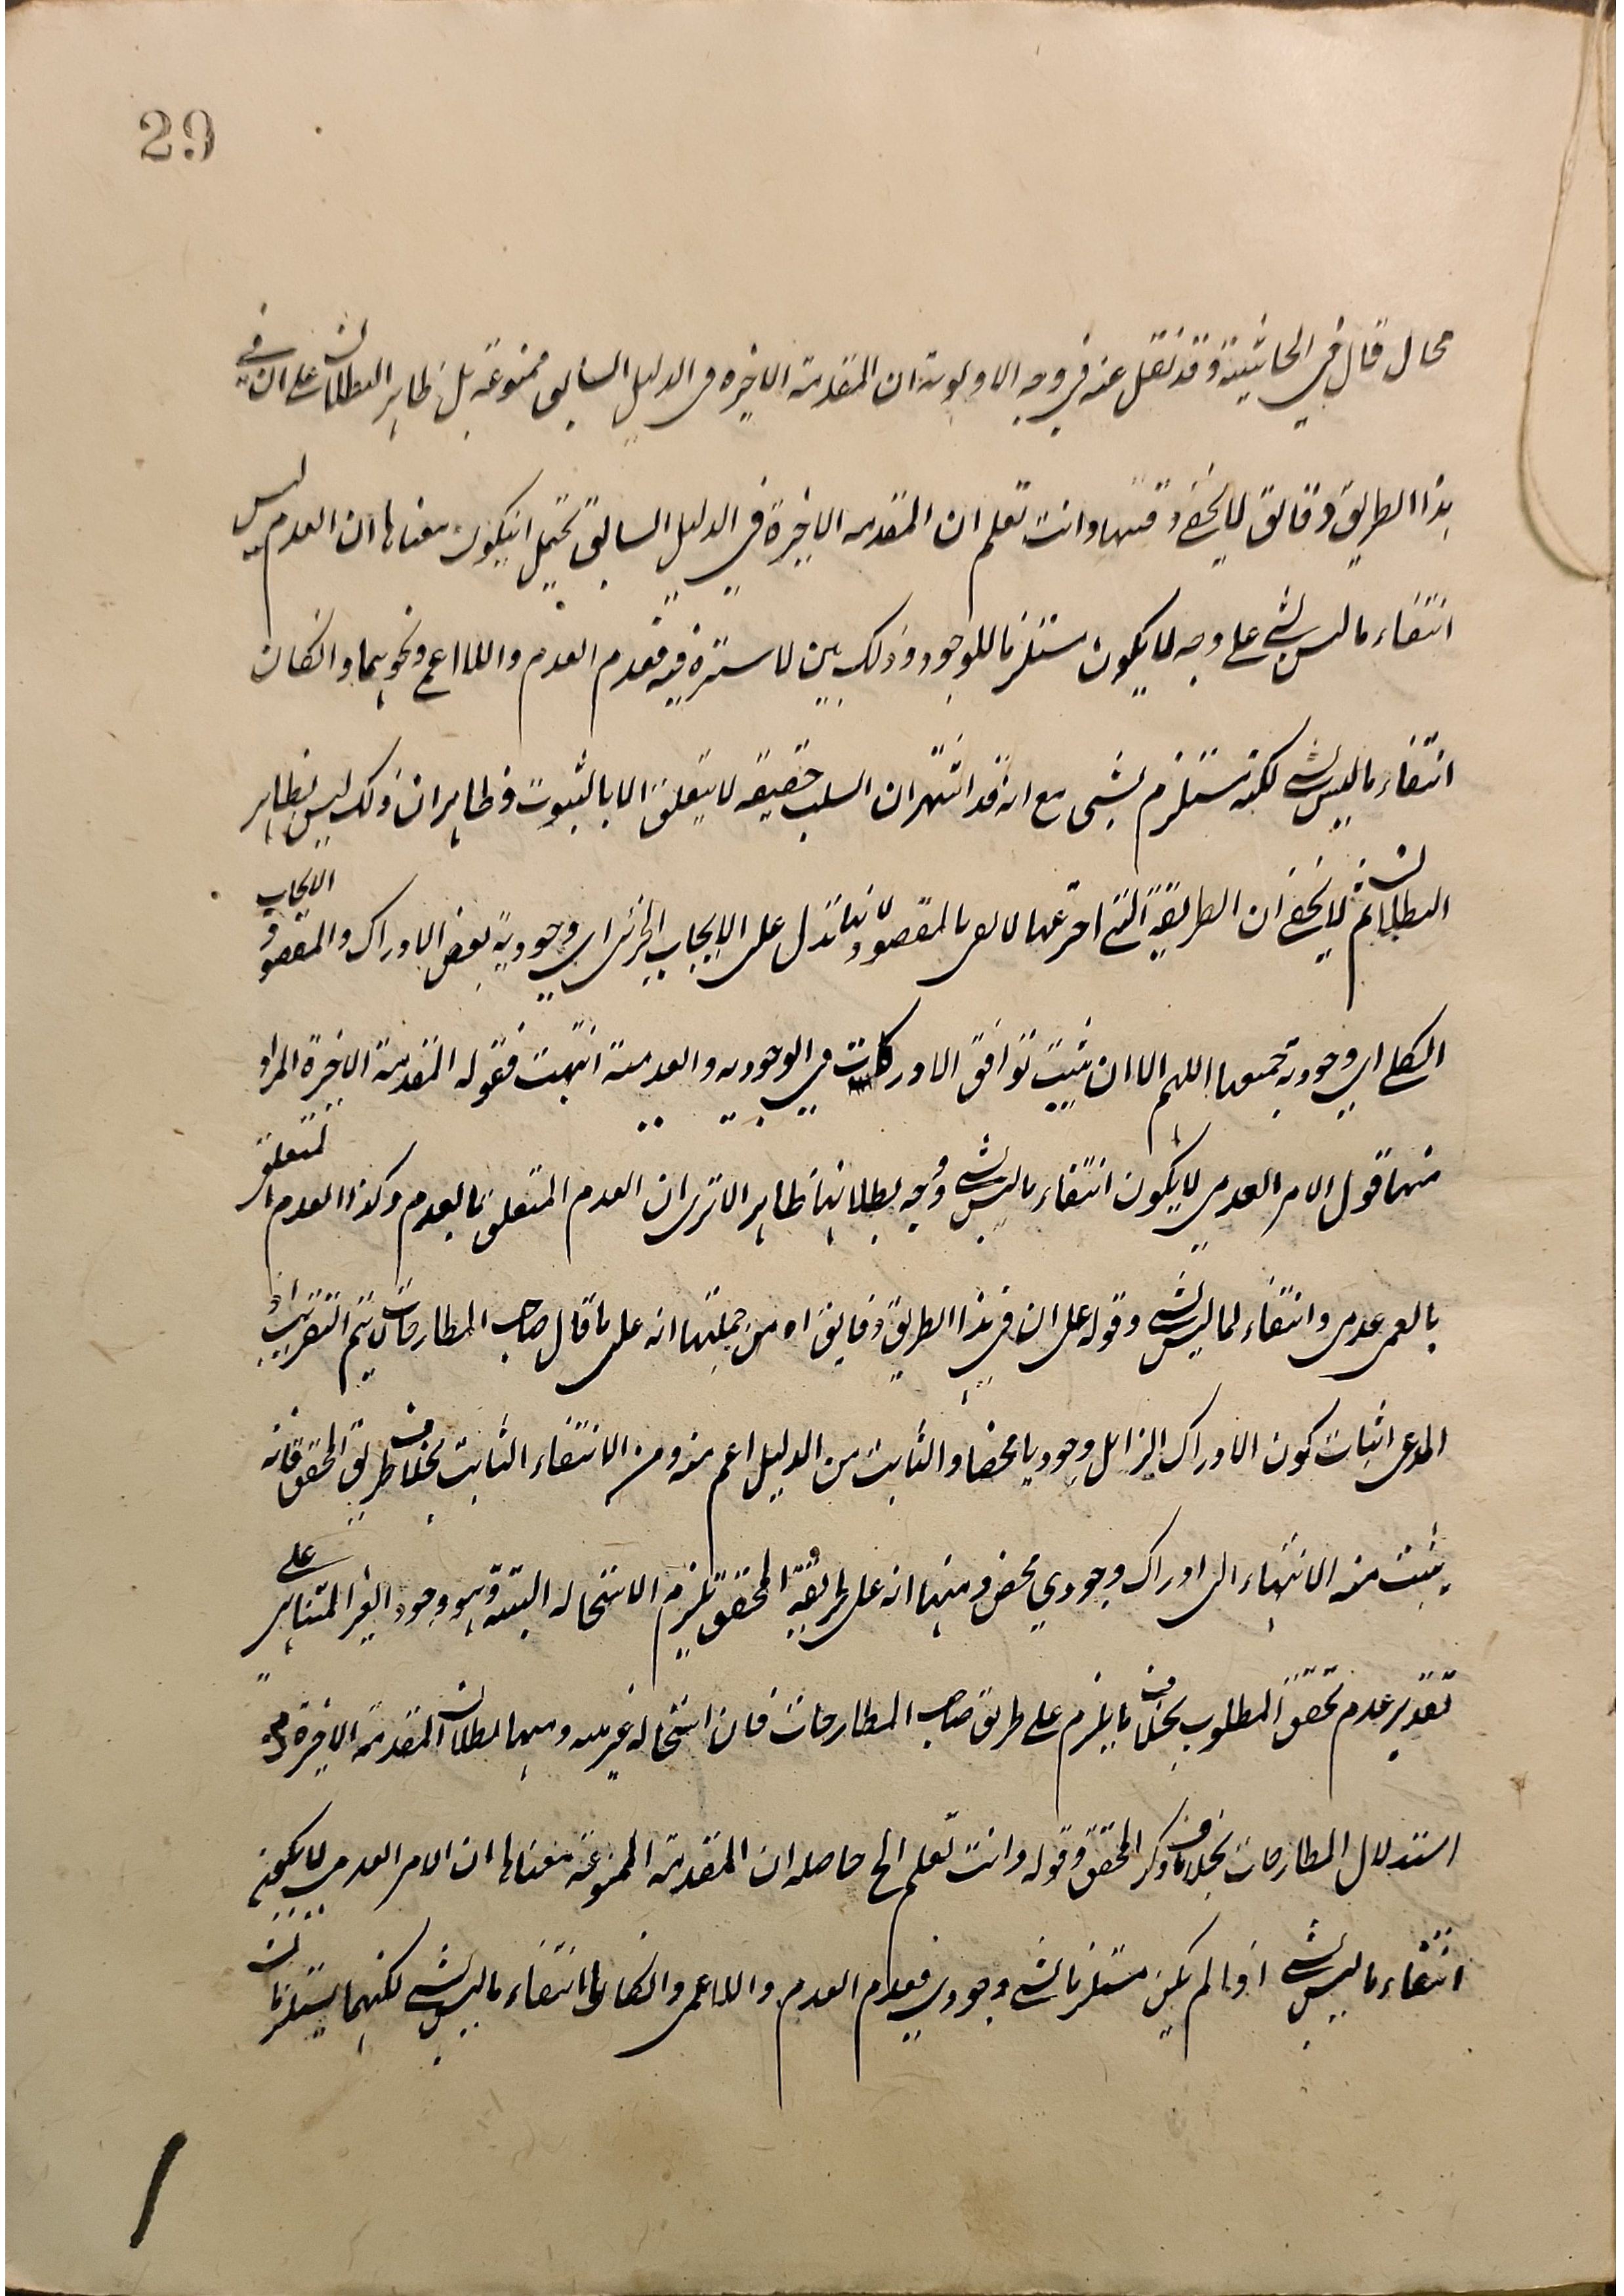 29
محال قال في الحاشية وقد نقل عنه في وجه الاولوية ان المقدمة الاخيرة في الدليل السابق ممنوعة بل ظاهر البطلان على ان في
هذا الطريق دقائق لا يخفى دقتها وانت تعلم ان المقدمة الاخيرة في الدليل السابق تحتمل ان يكون معناها ان العدم ليس
انتفاء ما ليس بشي على وجه لا يكون مستلزما للوجود وذلك بين لا سترة فيه فعدم العدم واللا اعمى ونحوهما وانكان
انتفاء ما ليس بشي لكنه مستلزم لشي مع انه قد اشتهر ان السلب حقيقة لا يتعلق الا بالثبوت فظاهر ان ذلك ليس بظاهر
البطلان ثم لا يخفى ان الطريقة التي اخترعها لا يفي بالمقصود لانها تدل على الايجاب الجزئي اي وجودية بعض الادراك والمقصود الايجاب
الكلي اي وجودية جميعها اللهم الا ان يثبت توافق الادراكات في الوجودية والعدمية انتهت فقوله المقدمة الاخيرة المراد
منها قول الامر العدمي لا يكون انتفاء ما ليس بشي ووجه بطلانها ظاهر الا ترى ان العدم المتعلق بالعدم وكذا العدم المتعلق
بالعمى عدمي وانتفاء لما ليس بشي وقوله على ان في هذا الطريق دقايق اه من جملتها انه على ما قال صاحب المطارحات لا يتم التقريب اذ
المدعى اثبات كون الادراك الزائل وجوديا محضا والثابت من الدليل اعم منه ومن الانتفاء الثابت بخلاف طريق المحقق فانه
يثبت منه الانتهاء الى ادراك وجودي محض ومنها انه على طريقة المحقق يلزم الاستحالة البتة وهو وجود الغير المتناهي على
تقدير عدم تحقق المطلوب بخلاف ما يلزم على طريق صاحب المطارحات فان استحالة غير بينة ومنها بطلان المقدمة الاخيرة في
استدلال المطارحات بخلاف ما ذكر المحقق وقوله وانت تعلم الخ حاصله ان المقدمة الممنوعة معناها ان الامر العدمي لا يكون
انتفاء ما ليس بشي اذا لم يكن مستلزما لشي وجودي فعدم العدم واللا عمى وانكانا انتفاء ما ليس بشي لكنهما يستلزمان